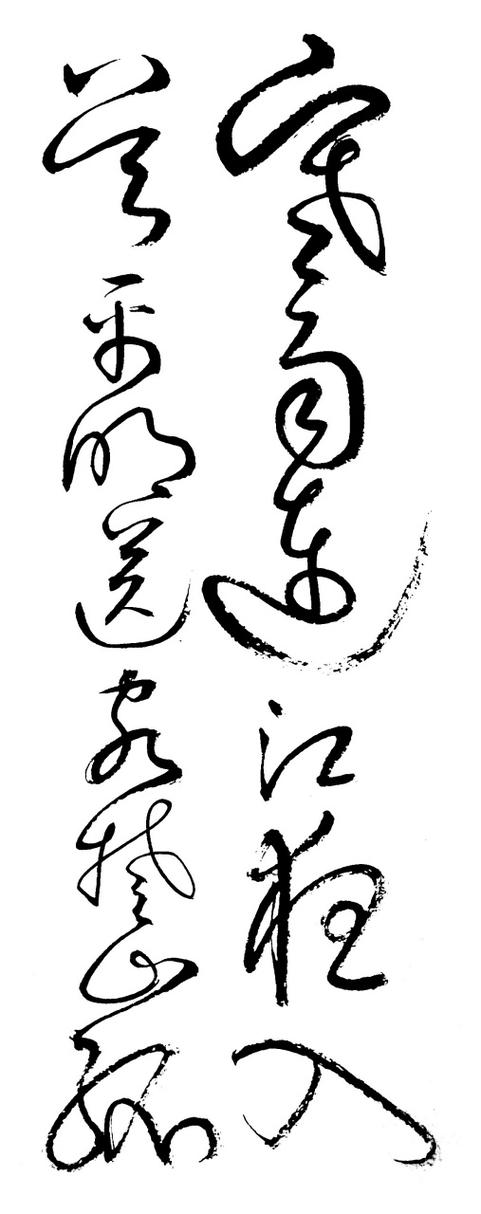 寒雨連江夜入
吳平明送客楚山孤